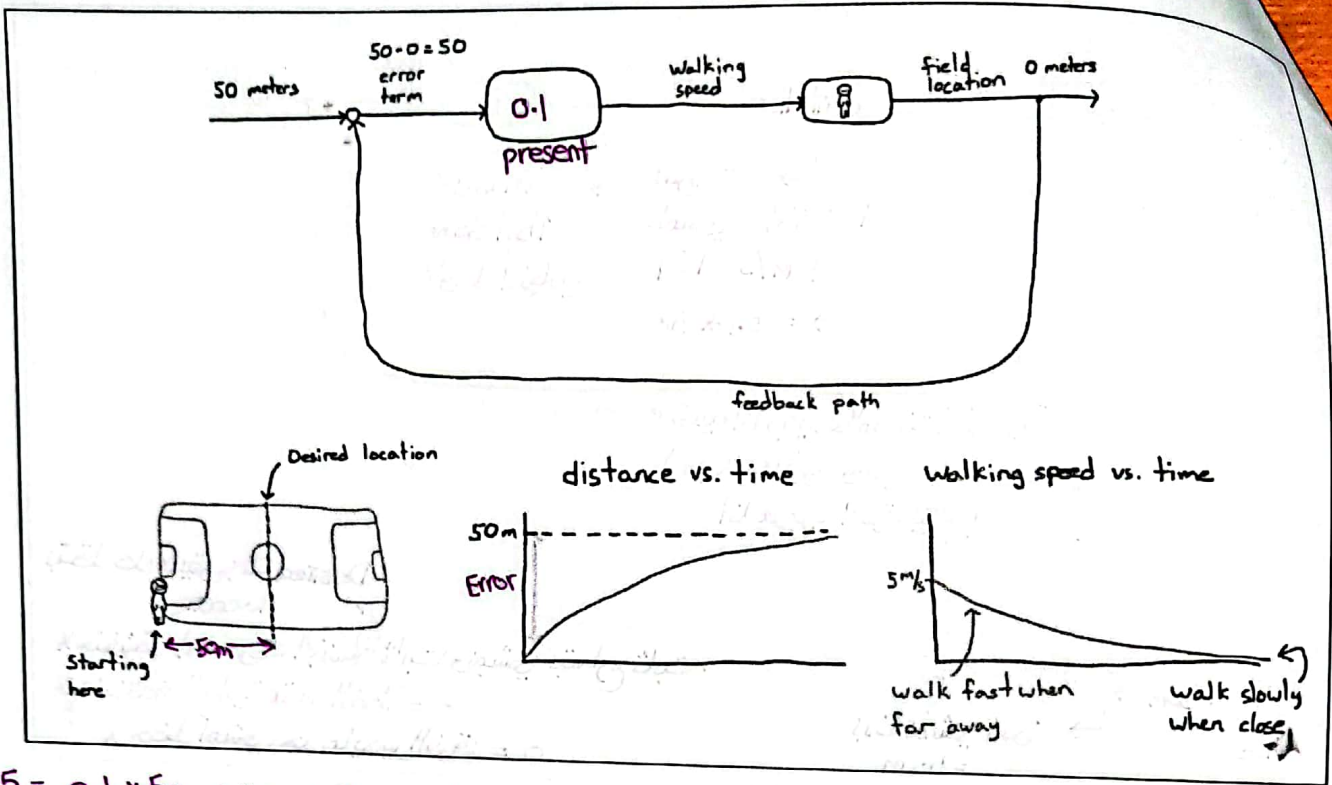 50-0=50
error
term
50 meters
0.1
present
walking
speed
field
location
0 meters
feedback path
Desired location
50m
starting
here
distance vs. time
50m
Error
walking speed vs. time
5 m/s
walk fast when
far away
walk slowly
when close